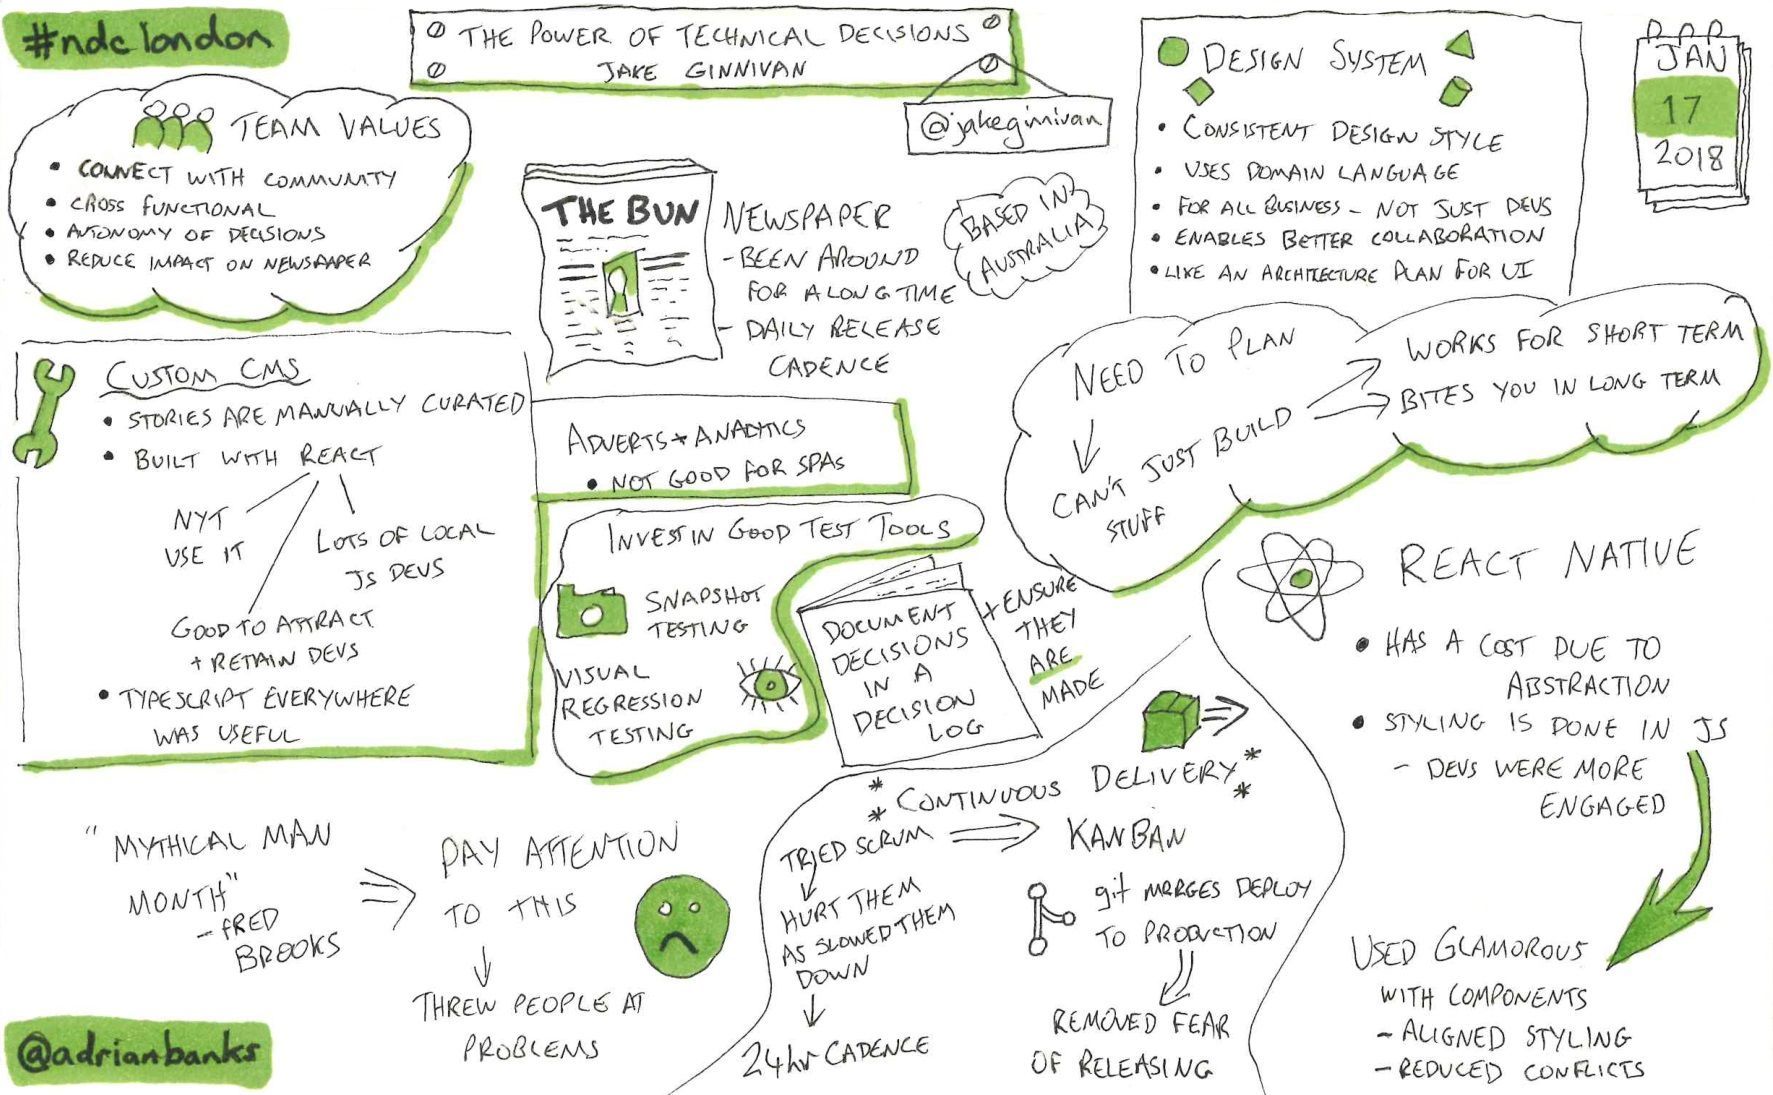 #ndclondon
THE POWER OF TECHNICAL DECISIONS
JAKE GINNIVAN
@jakeginnivan
JAN
17
2018
TEAM VALUES
• CONNECT WITH COMMUNITY
• CROSS FUNCTIONAL
• AUTONOMY OF DECISIONS
• REDUCE IMPACT ON NEWSPAPER
THE BUN
NEWSPAPER
- BEEN AROUND
FOR A LONG TIME
- DAILY RELEASE
CADENCE
BASED IN
AUSTRALIA
DESIGN SYSTEM
• CONSISTENT DESIGN STYLE
• USES DOMAIN LANGUAGE
• FOR ALL BUSINESS - NOT JUST DEVS
• ENABLES BETTER COLLABORATION
• LIKE AN ARCHITECTURE PLAN FOR UI
CUSTOM CMS
• STORIES ARE MANUALLY CURATED
• BUILT WITH REACT
NYT
USE IT
LOTS OF LOCAL
JS DEVS
GOOD TO ATTRACT
+ RETAIN DEVS
• TYPESCRIPT EVERYWHERE
WAS USEFUL
ADVERTS + ANALYTICS
• NOT GOOD FOR SPAs
INVEST IN GOOD TEST TOOLS
SNAPSHOT
TESTING
VISUAL
REGRESSION
TESTING
DOCUMENT
DECISIONS
IN A
DECISION
LOG
+ ENSURE
THEY
ARE
MADE
NEED TO PLAN
CAN'T JUST BUILD
STUFF
WORKS FOR SHORT TERM
BITES YOU IN LONG TERM
REACT NATIVE
• HAS A COST DUE TO
ABSTRACTION
• STYLING IS DONE IN JS
- DEVS WERE MORE
ENGAGED
USED GLAMOROUS
WITH COMPONENTS
- ALIGNED STYLING
- REDUCED CONFLICTS
"MYTHICAL MAN
MONTH"
- FRED
BROOKS
PAY ATTENTION
TO THIS
THREW PEOPLE AT
PROBLEMS
* CONTINUOUS DELIVERY *
TRIED SCRUM
HURT THEM
AS SLOWED THEM
DOWN
24hr CADENCE
KANBAN
git MERGES DEPLOY
TO PRODUCTION
REMOVED FEAR
OF RELEASING
@adrianbanks